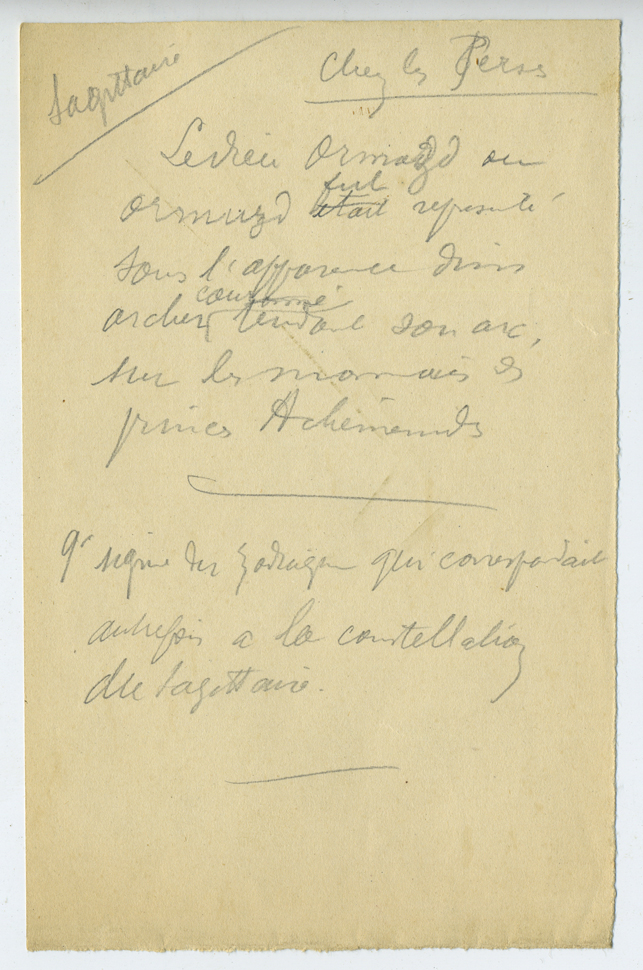 Sagittaire
Chez les Perses
Le dieu Ormazd ou
fut
ormuzd était représenté
sous l'apparence d'un
couronné
archer tendant son arc,
sur les monnaies des
princes Achéménides
9e signe du Zodiaque qui correspondait
autrefois a la constellation
du Sagittaire.